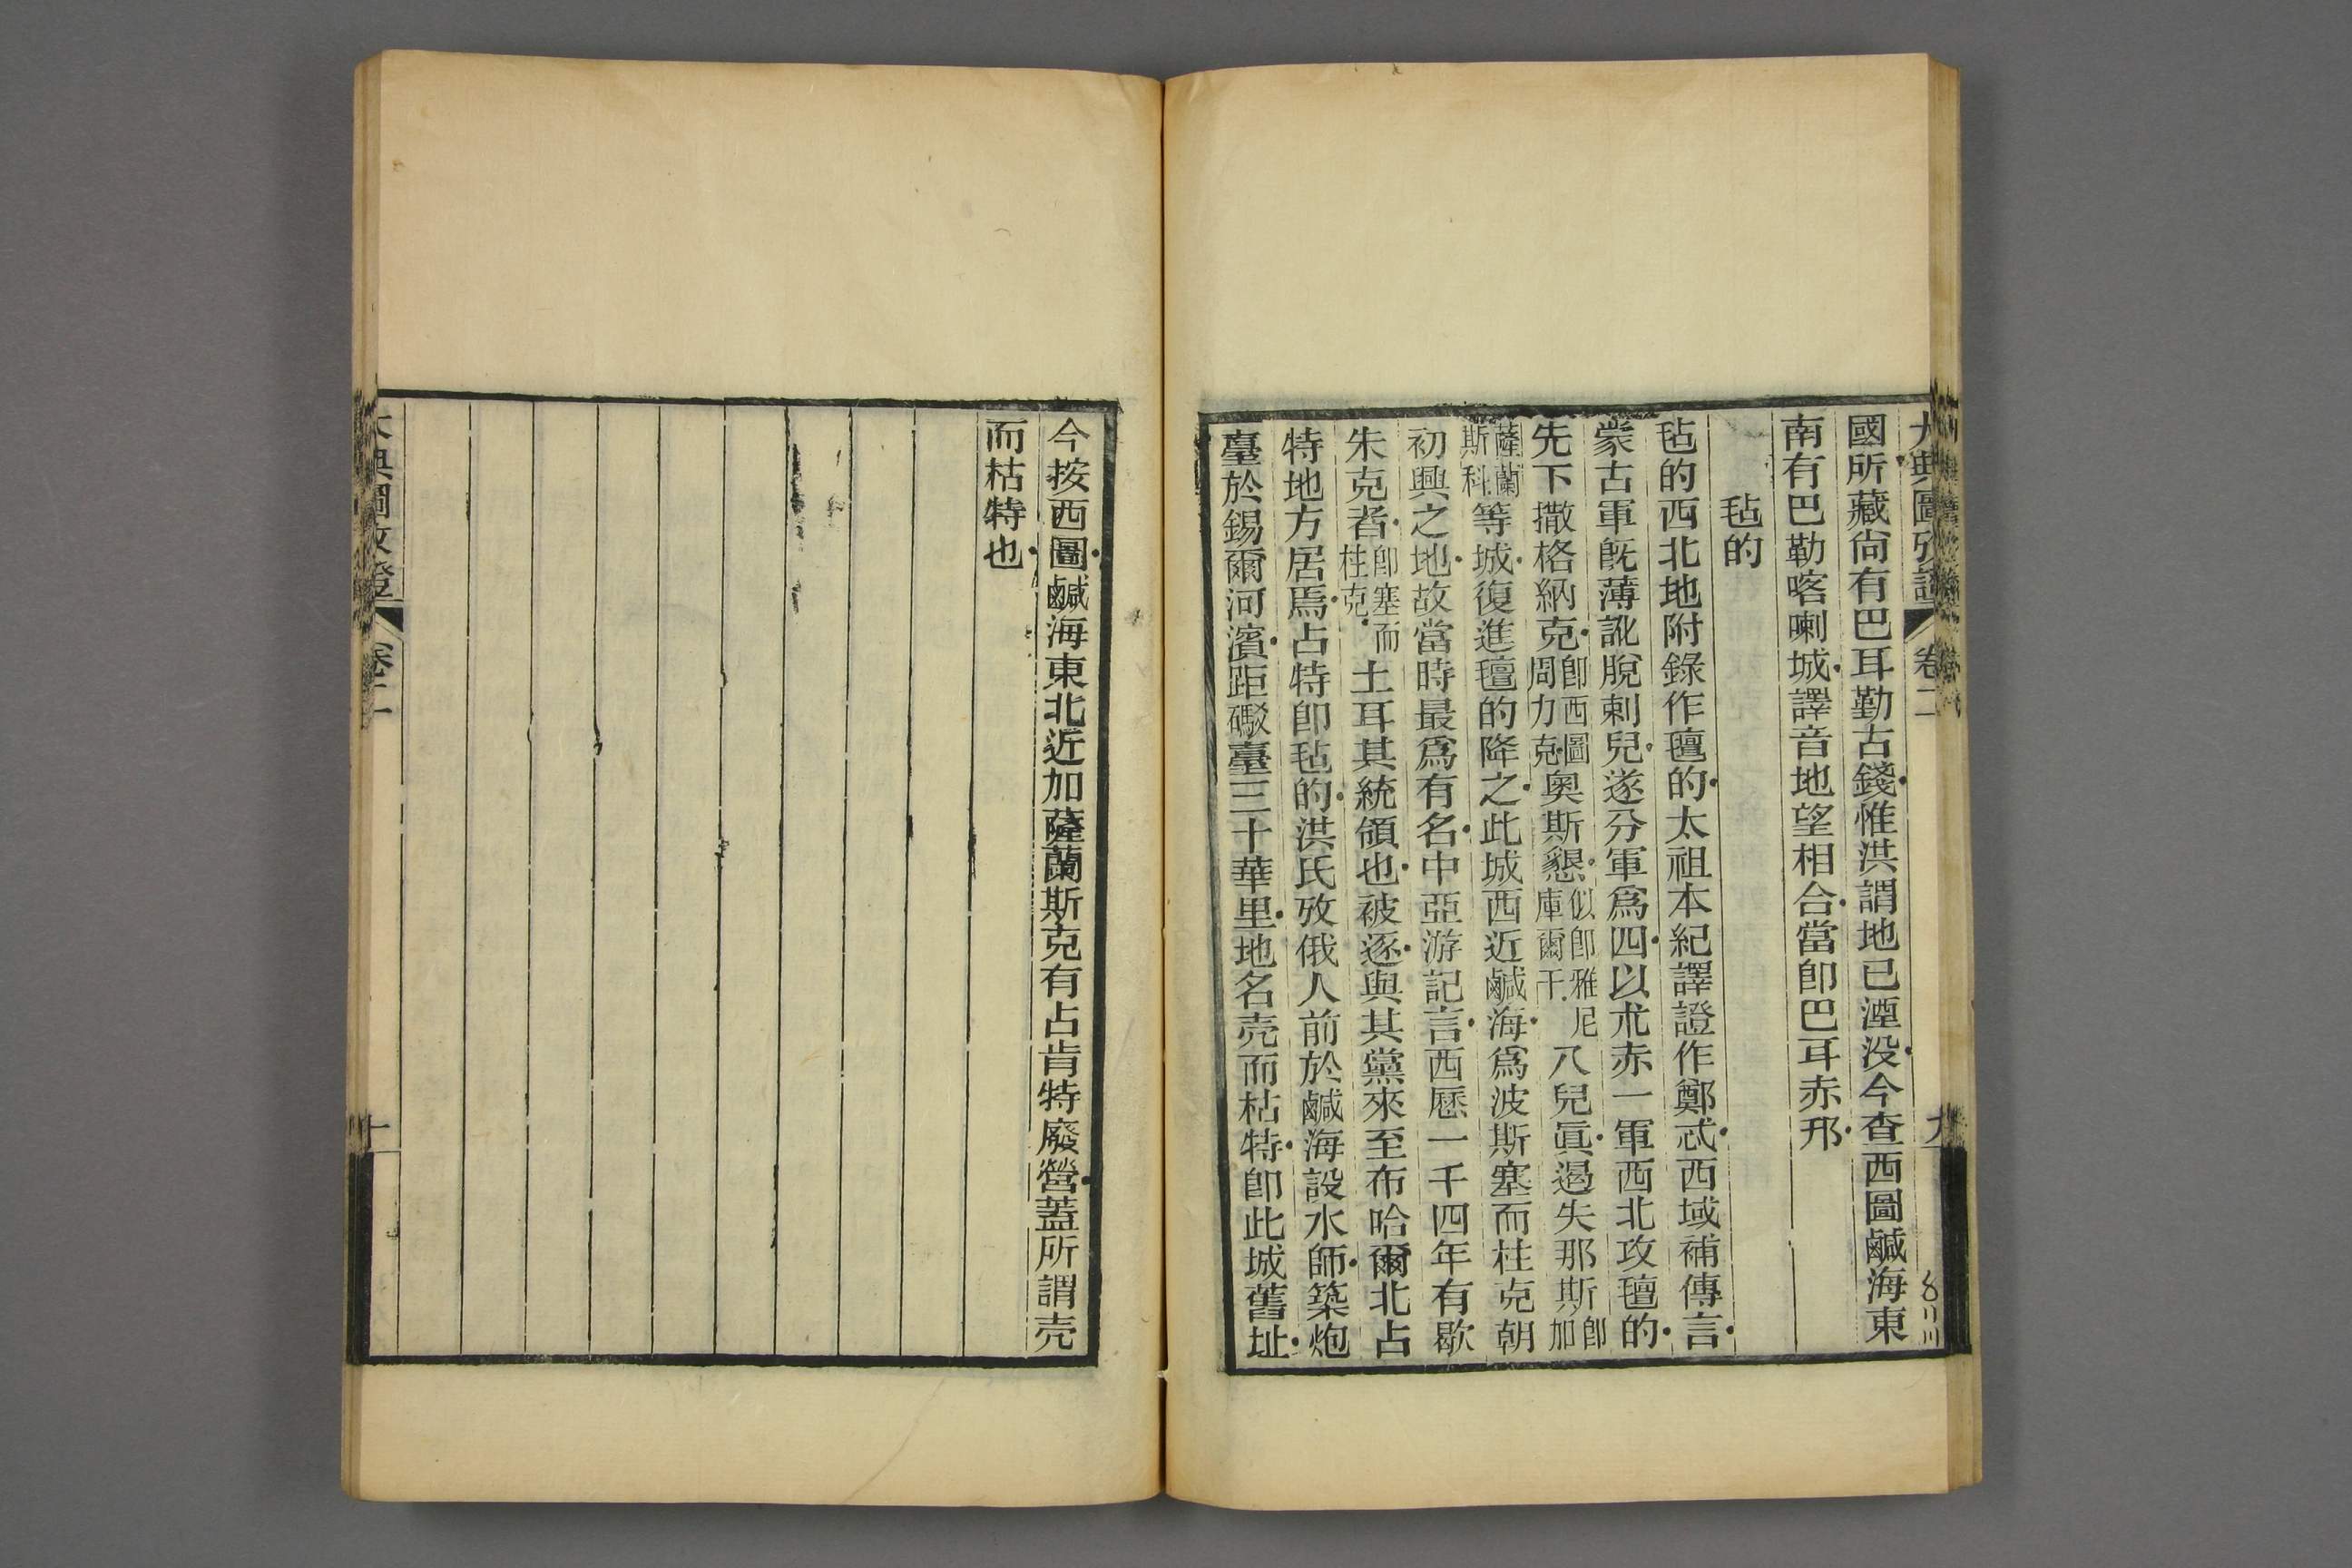 大典圖攷證 卷二 九
國所藏尚有巴耳勤古錢惟洪謂地已湮没今查西圖鹹海東
南有巴勒喀喇城譯音地望相合當卽巴耳赤邗
毡的
毡的西北地附錄作氊的太祖本紀譯證作鄭忒西域補傳言
蒙古軍旣薄訛脫剌兒遂分軍爲四以朮赤一軍西北攻氊的
先下撒格納克卽西圖周力克奧斯懇似卽雅尼庫爾干八兒眞過失那斯卽加
薩蘭斯科等城復進氊的降之此城西近鹹海爲波斯塞而柱克朝
初興之地故當時最爲有名中亞游記言西曆一千四年有歇
朱克者卽塞而柱克土耳其統領也被逐與其黨來至布哈爾北占
特地方居焉占特卽毡的洪氏攷俄人前於鹹海設水師築炮
臺於錫爾河濱距礟臺三十華里地名壳而枯特卽此城舊址
今按西圖鹹海東北近加薩蘭斯克有占肯特廢營蓋所謂壳
而枯特也
大典圖攷證 卷二 十